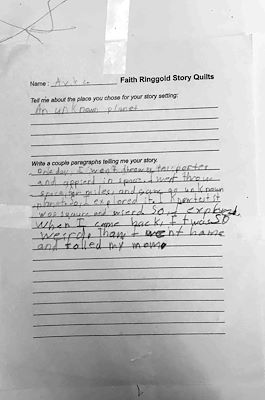 Name: Faith Ringgold Story Quilts
Tell me about the place you chose for your story setting:
An unknown planet
Write a couple paragraphs telling me your story.
One day, I went throw a
and in space. I went throw
miles and unknown
I explored it, I
was square and So I explored.
When I came back, It was so
weird. Than I went home
and tolled my mom.